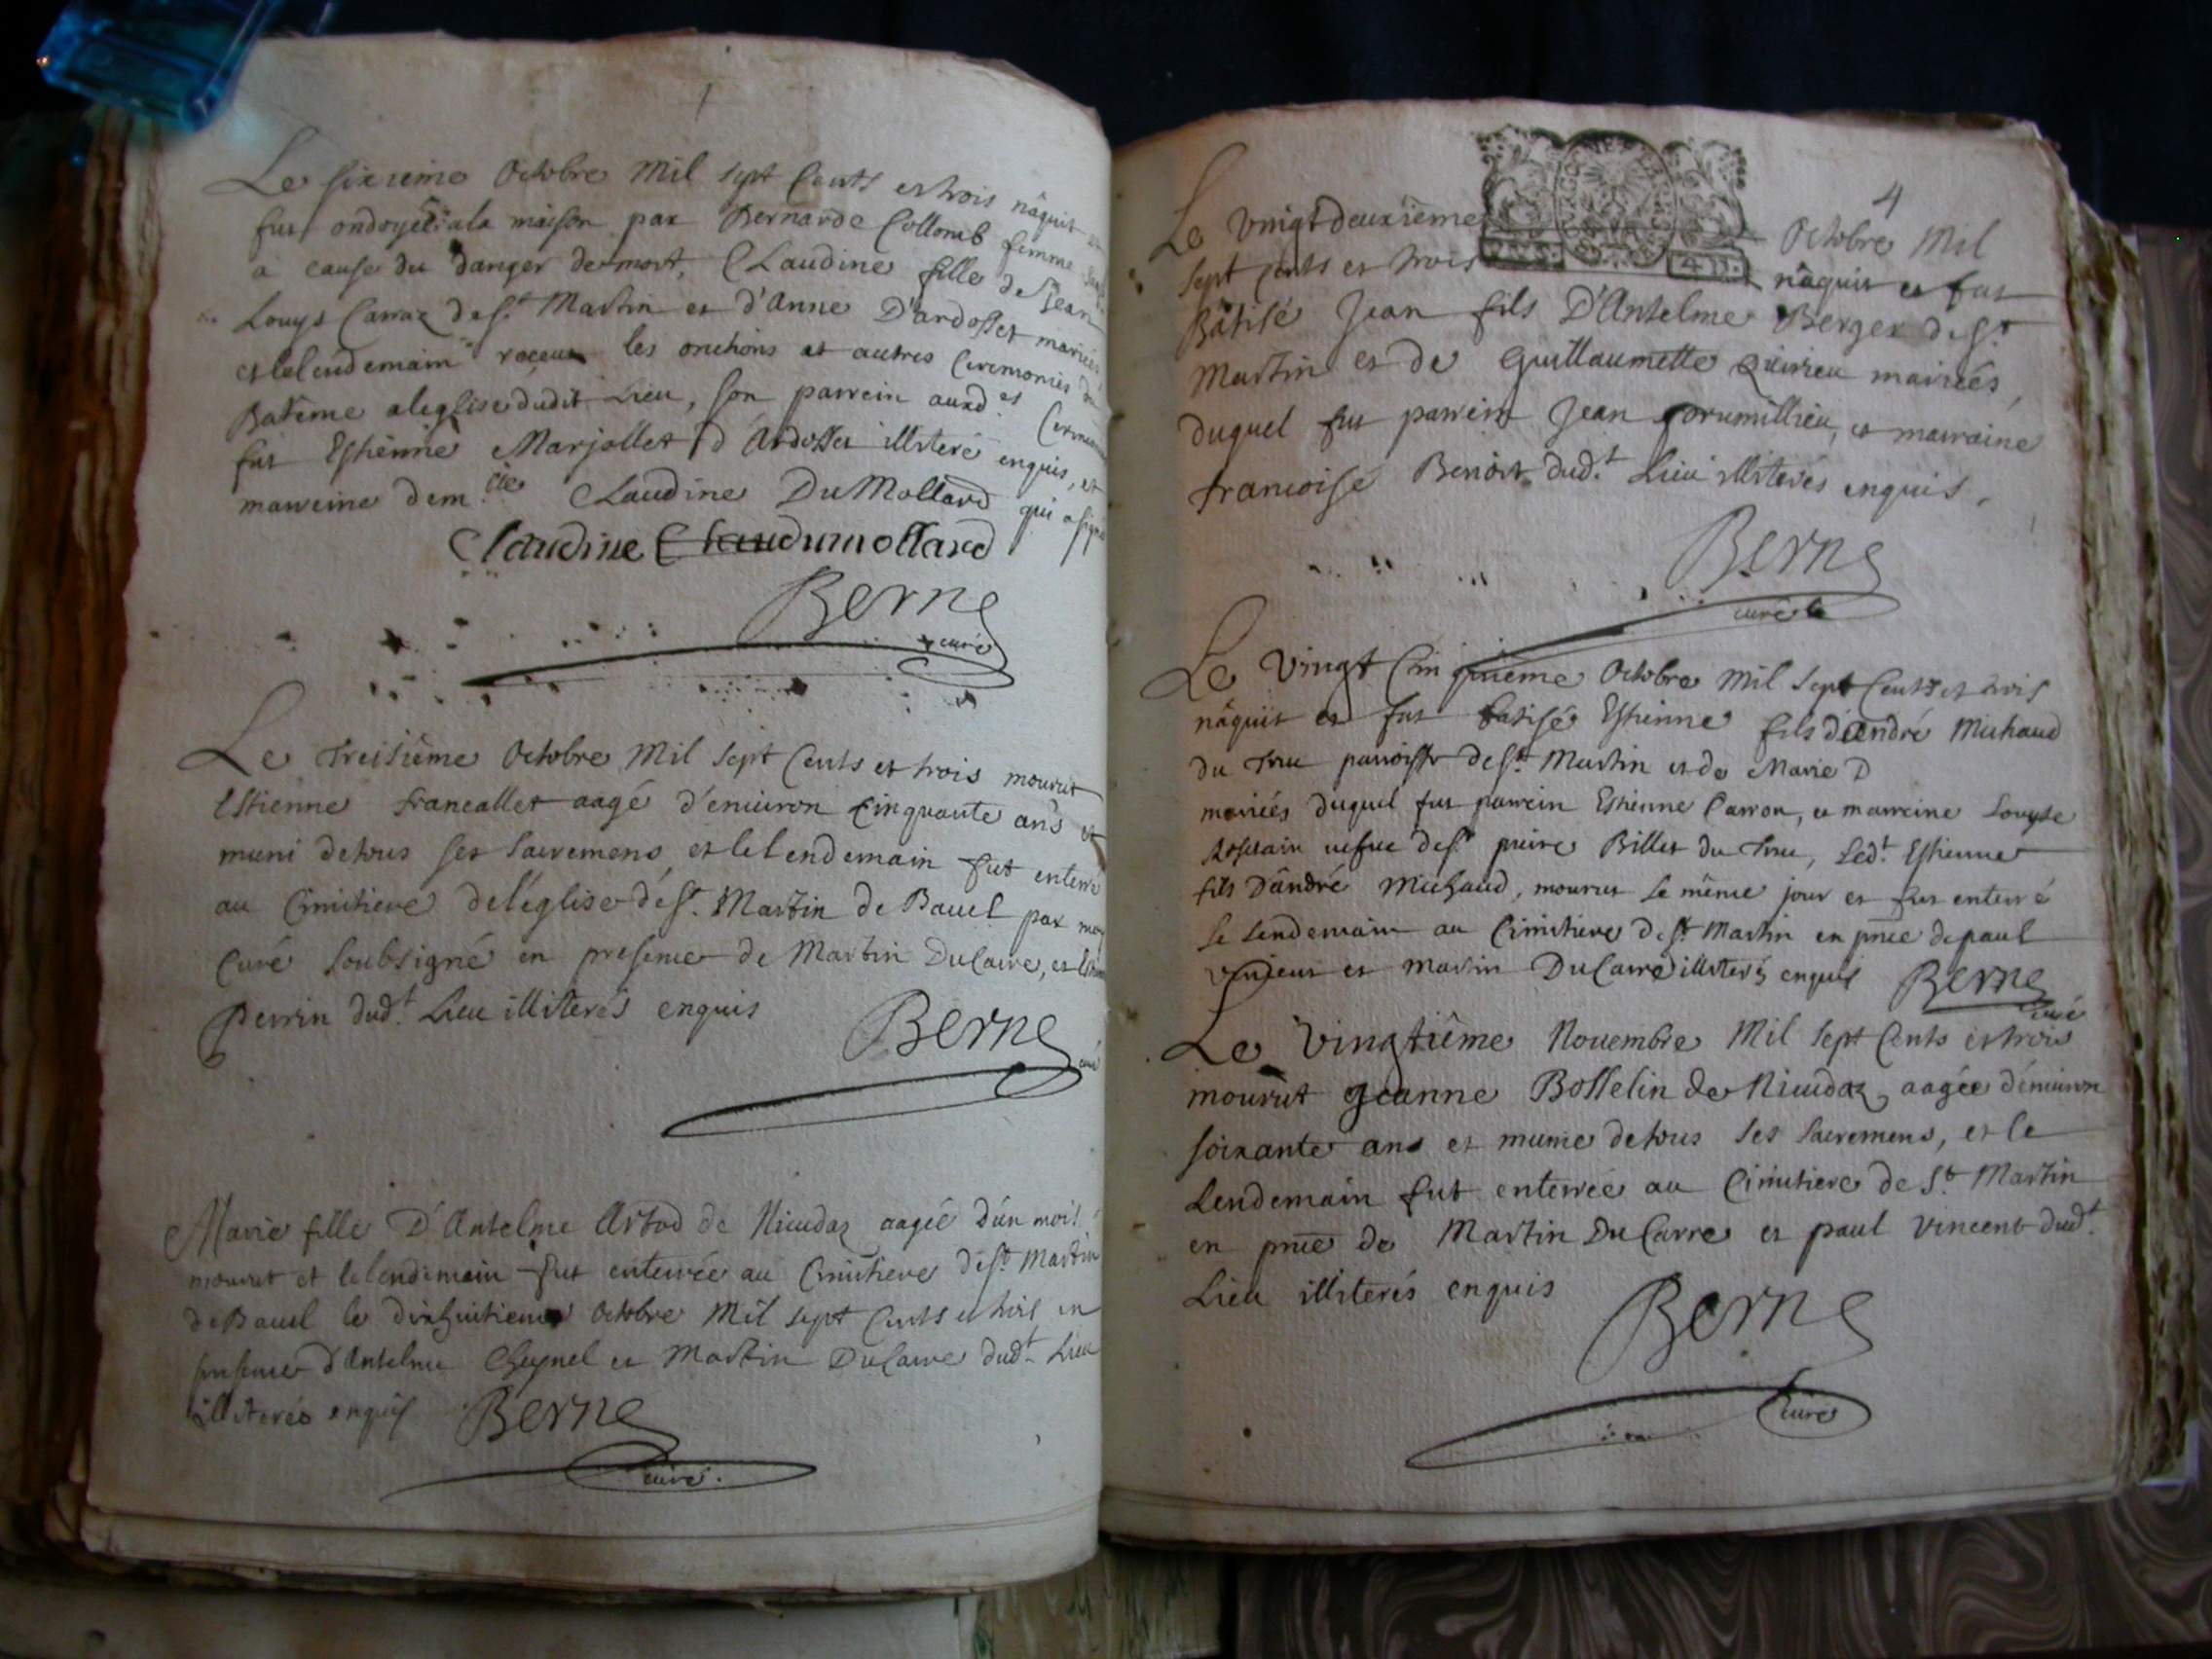 Le sixieme Octobre Mil sept Cents et trois nâquit
fut ondoyée a la maison par Bernarde Collomb femme
a cause du danger de mort, Claudine fille de Jean
Louys Carraz de St Martin et d'Anne D'ardosset mariés
et le lendemain receut les onctions et autres Ceremonies du
Batême a l'eglise dudit Lieu, son parrein auxd.es
fut Estienne Marjollet d'Ardosset illiteré enquis, et
marreine dem.lle Claudine DuMollard qui a signé
Claudine dumollard
Berne
curé
Le Treisième Octobre Mil sept Cents et trois mourut
Estienne francallet aagé d'enuiron Cinquante ans et
muni de tous ses sacremens et le lendemain fut enterré
au Cimitiere de l'église de St. Martin de Bauel par moy
Curé soubsigné en presence de Martin DuCarre, et
Perrin dud.t Lieu illiterés enquis
Berne
curé
Marie fille D'Antelme Artod de Niuudaz aagée d'un mois
mourut et le lendemain fut enterrée au Cimitiere de St. Martin
de Bauel le dixhuitieme Octobre Mil sept Cents et trois en
presence d'Antelme Cheynel et Martin DuCarre dud.t Lieu
illiterés enquis Berne
curé.
4
Le Vingtdeuxième Octobre Mil
sept Cents et trois nâquit et fut
Bâtisé Jean fils D'Antelme Berger de St.
Martin et de Guillaumette Quirieu mairiés,
duquel fut parrein Jean Cormillieu, et marraine
francoise Benoit dud.t Lieu illiterés enquis,
Berne
curé
Le Vingt Cinquième Octobre Mil sept Cents et trois
nâquit et fut batisé Estienne fils d'André Michaud
du Truc parroisse de St. Martin et de Marie D
mairiés duquel fut parrein Estienne Carron, et marreine Louyse
uefue de St. Billet du Truc, Led.t Estienne
fils D'andré Michaud, mourut le même jour et fut enterré
le Lendemain au Cimitiere de St Martin en pnce de paul
et Martin DuCarre illiterés enquis Berne
curé
Le Vingtiême Nouembre Mil sept Cents et trois
mourut Jeanne Bosselin de Niuudaz, aagée d'enuiron
soixante ans et munie de tous ses sacremens, et le
Lendemain fut enterrée au Cimitiere de St. Martin
en pnce de Martin DuCarre et paul Vincent dud.t
Lieu illiterés enquis
Berne
curé